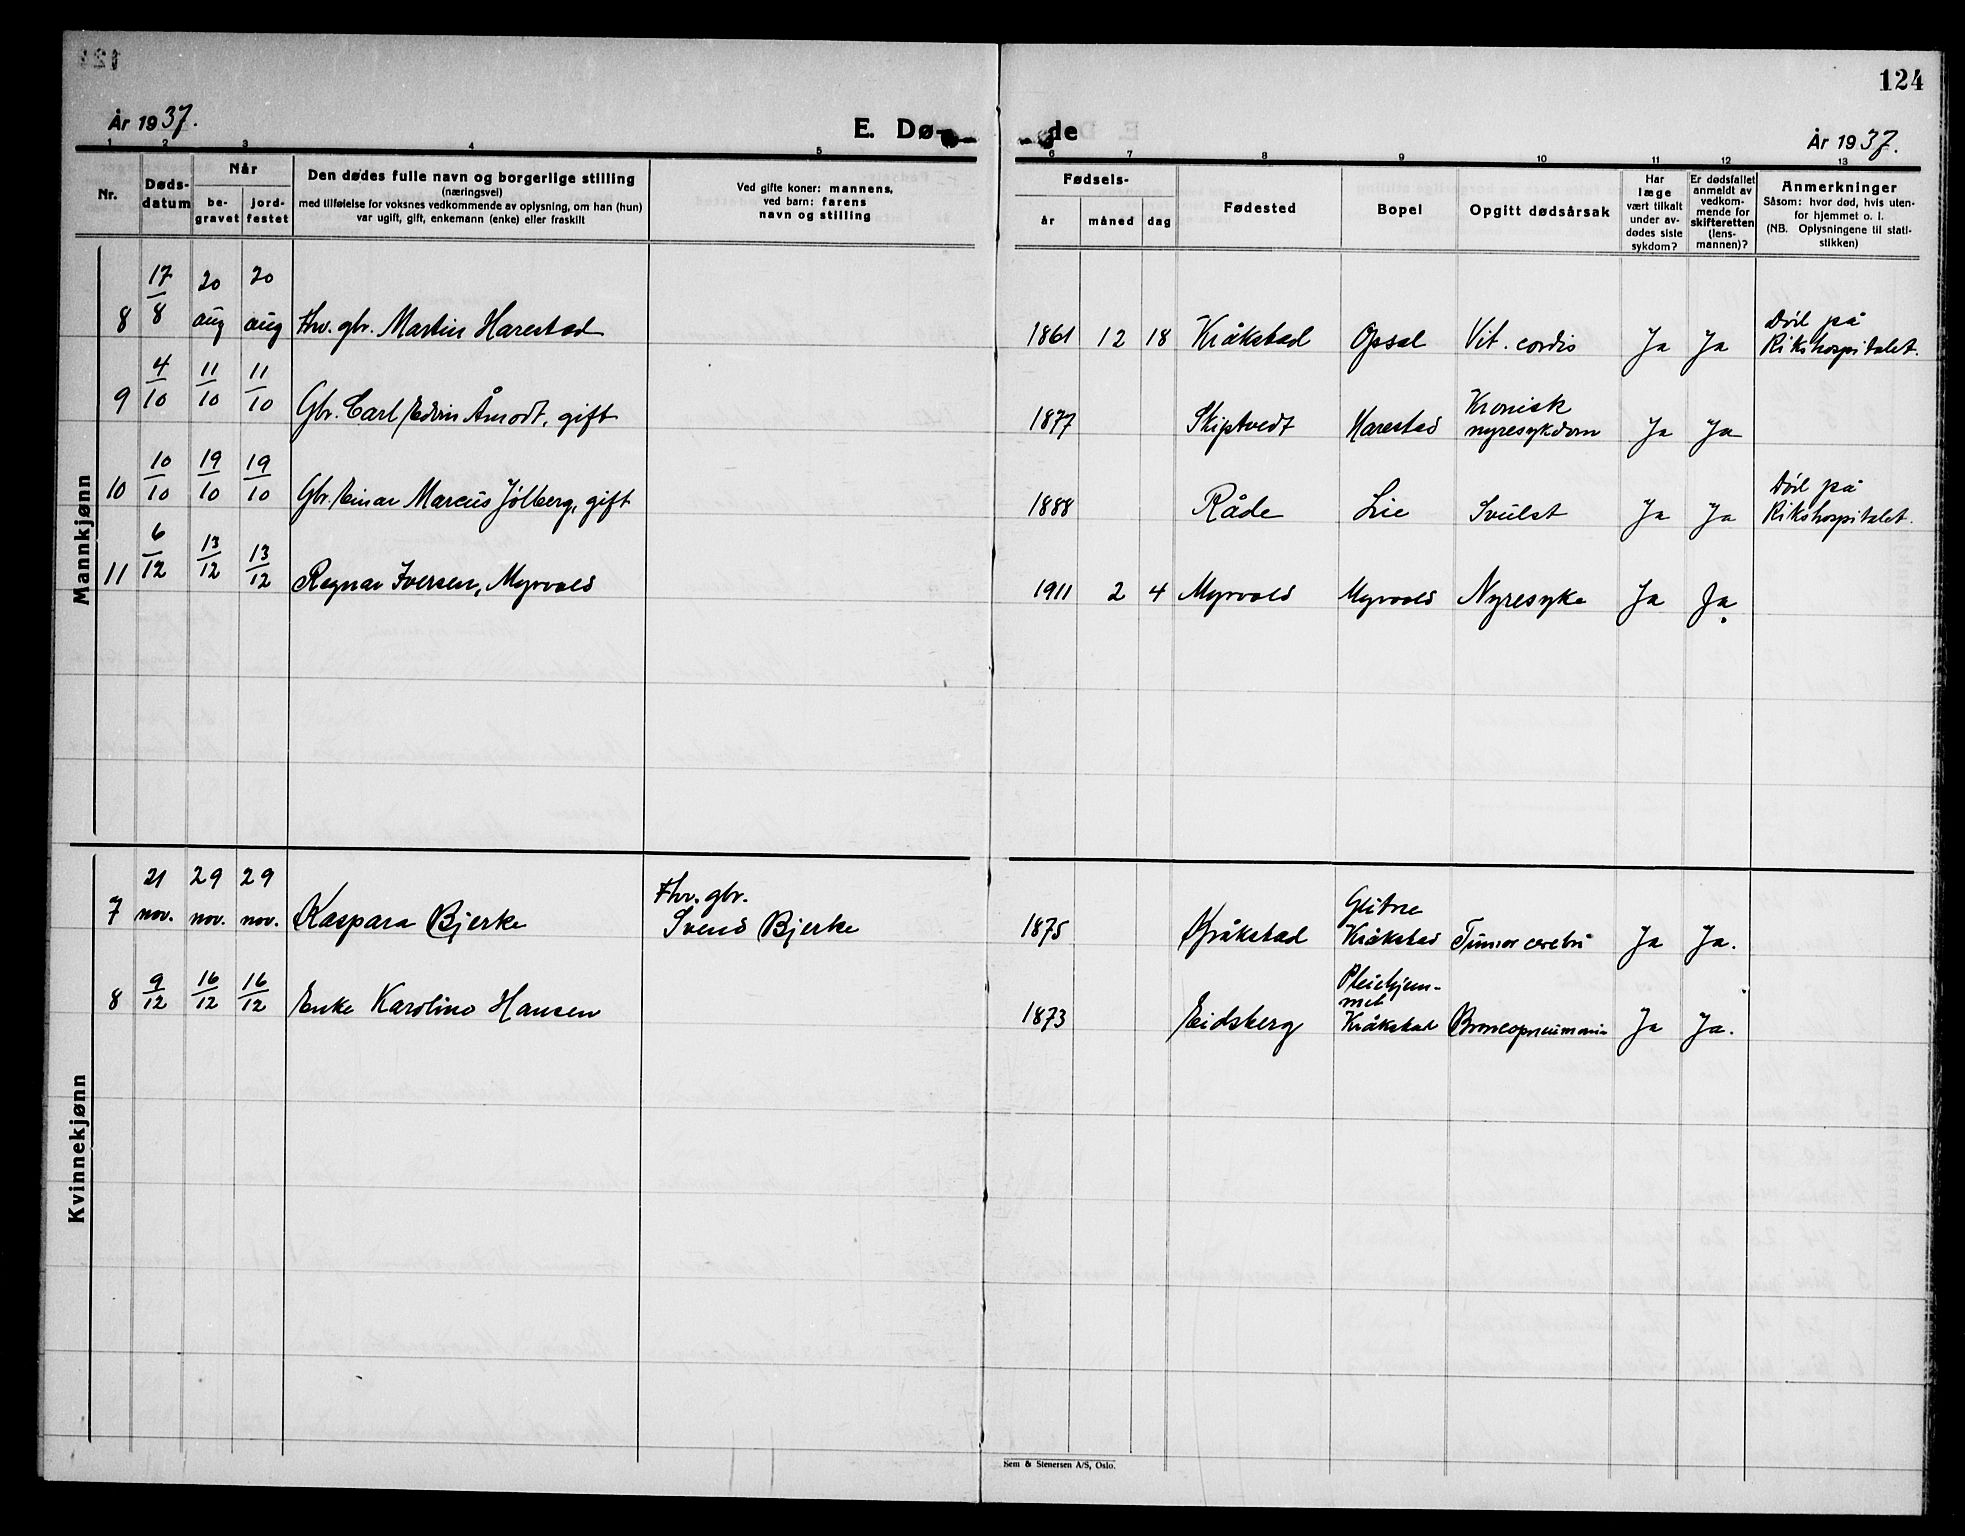 124
År 1937.
E. Dø-
de
År 1937.
1 2 3 4 5
6 7 8 9 10 11 12 13
Nr.
Døds-
datum
Når
be-
gravet
jord-
festet
Den dødes fulle navn og borgerlige stilling
(næringsvei)
med tilføielse for voksnes vedkommende av oplysning, om han (hun)
var ugift, gift, enkemann (enke) eller fraskilt
Ved gifte koner: mannens,
ved barn: farens
navn og stilling
Fødsels-
år
måned
dag
Fødested
Bopel
Opgitt dødsårsak
Har
læge
vært tilkalt
under av-
dødes siste
sykdom?
Er dødsfallet
anmeldt av
vedkom-
mende for
skifteretten
(lens-
mannen)?
Anmerkninger
Såsom: hvor død, hvis uten-
for hjemmet o. l.
(NB. Oplysningene til stati-
stikken)
Mannkjønn
8
17/8
20 aug
20 aug
Fhv. gbr. Martin Harestad
1861 12 18 Kråkstad Opsal Vit. cordis Ja Ja
Død på
Rikshospitalet.
9
4/10
11/10
11/10
Gbr. Carl Edvin Åmodt, gift
1877 Skiptvedt Harestad
Kronisk
nyresykdom
Ja Ja
10
10/10
19/10
19/10
Gbr. Einar Marcus Jølberg, gift
1888 Råde Lie Svulst Ja Ja
Død på
Rikshospitalet.
11
6/12
13/12
13/12
Ragnar Iversen, Myrvold
1911 2 4 Myrvold Myrvold Nyresyke Ja Ja
Kvinnekjønn
7
21 nov.
29 nov.
29 nov.
Kaspara Bjerke
Fhv. gbr.
Svend Bjerke
1875 Kråkstad
Glitre
Kråkstad
Tumor cerebri Ja Ja.
8
9/12
16/12
16/12
Enke Karoline Hansen
1873 Eidsberg
Pleiehjem-
met
Kråkstad
Broncopneumoni Ja Ja.
Sem & Stenersen A/S, Oslo.